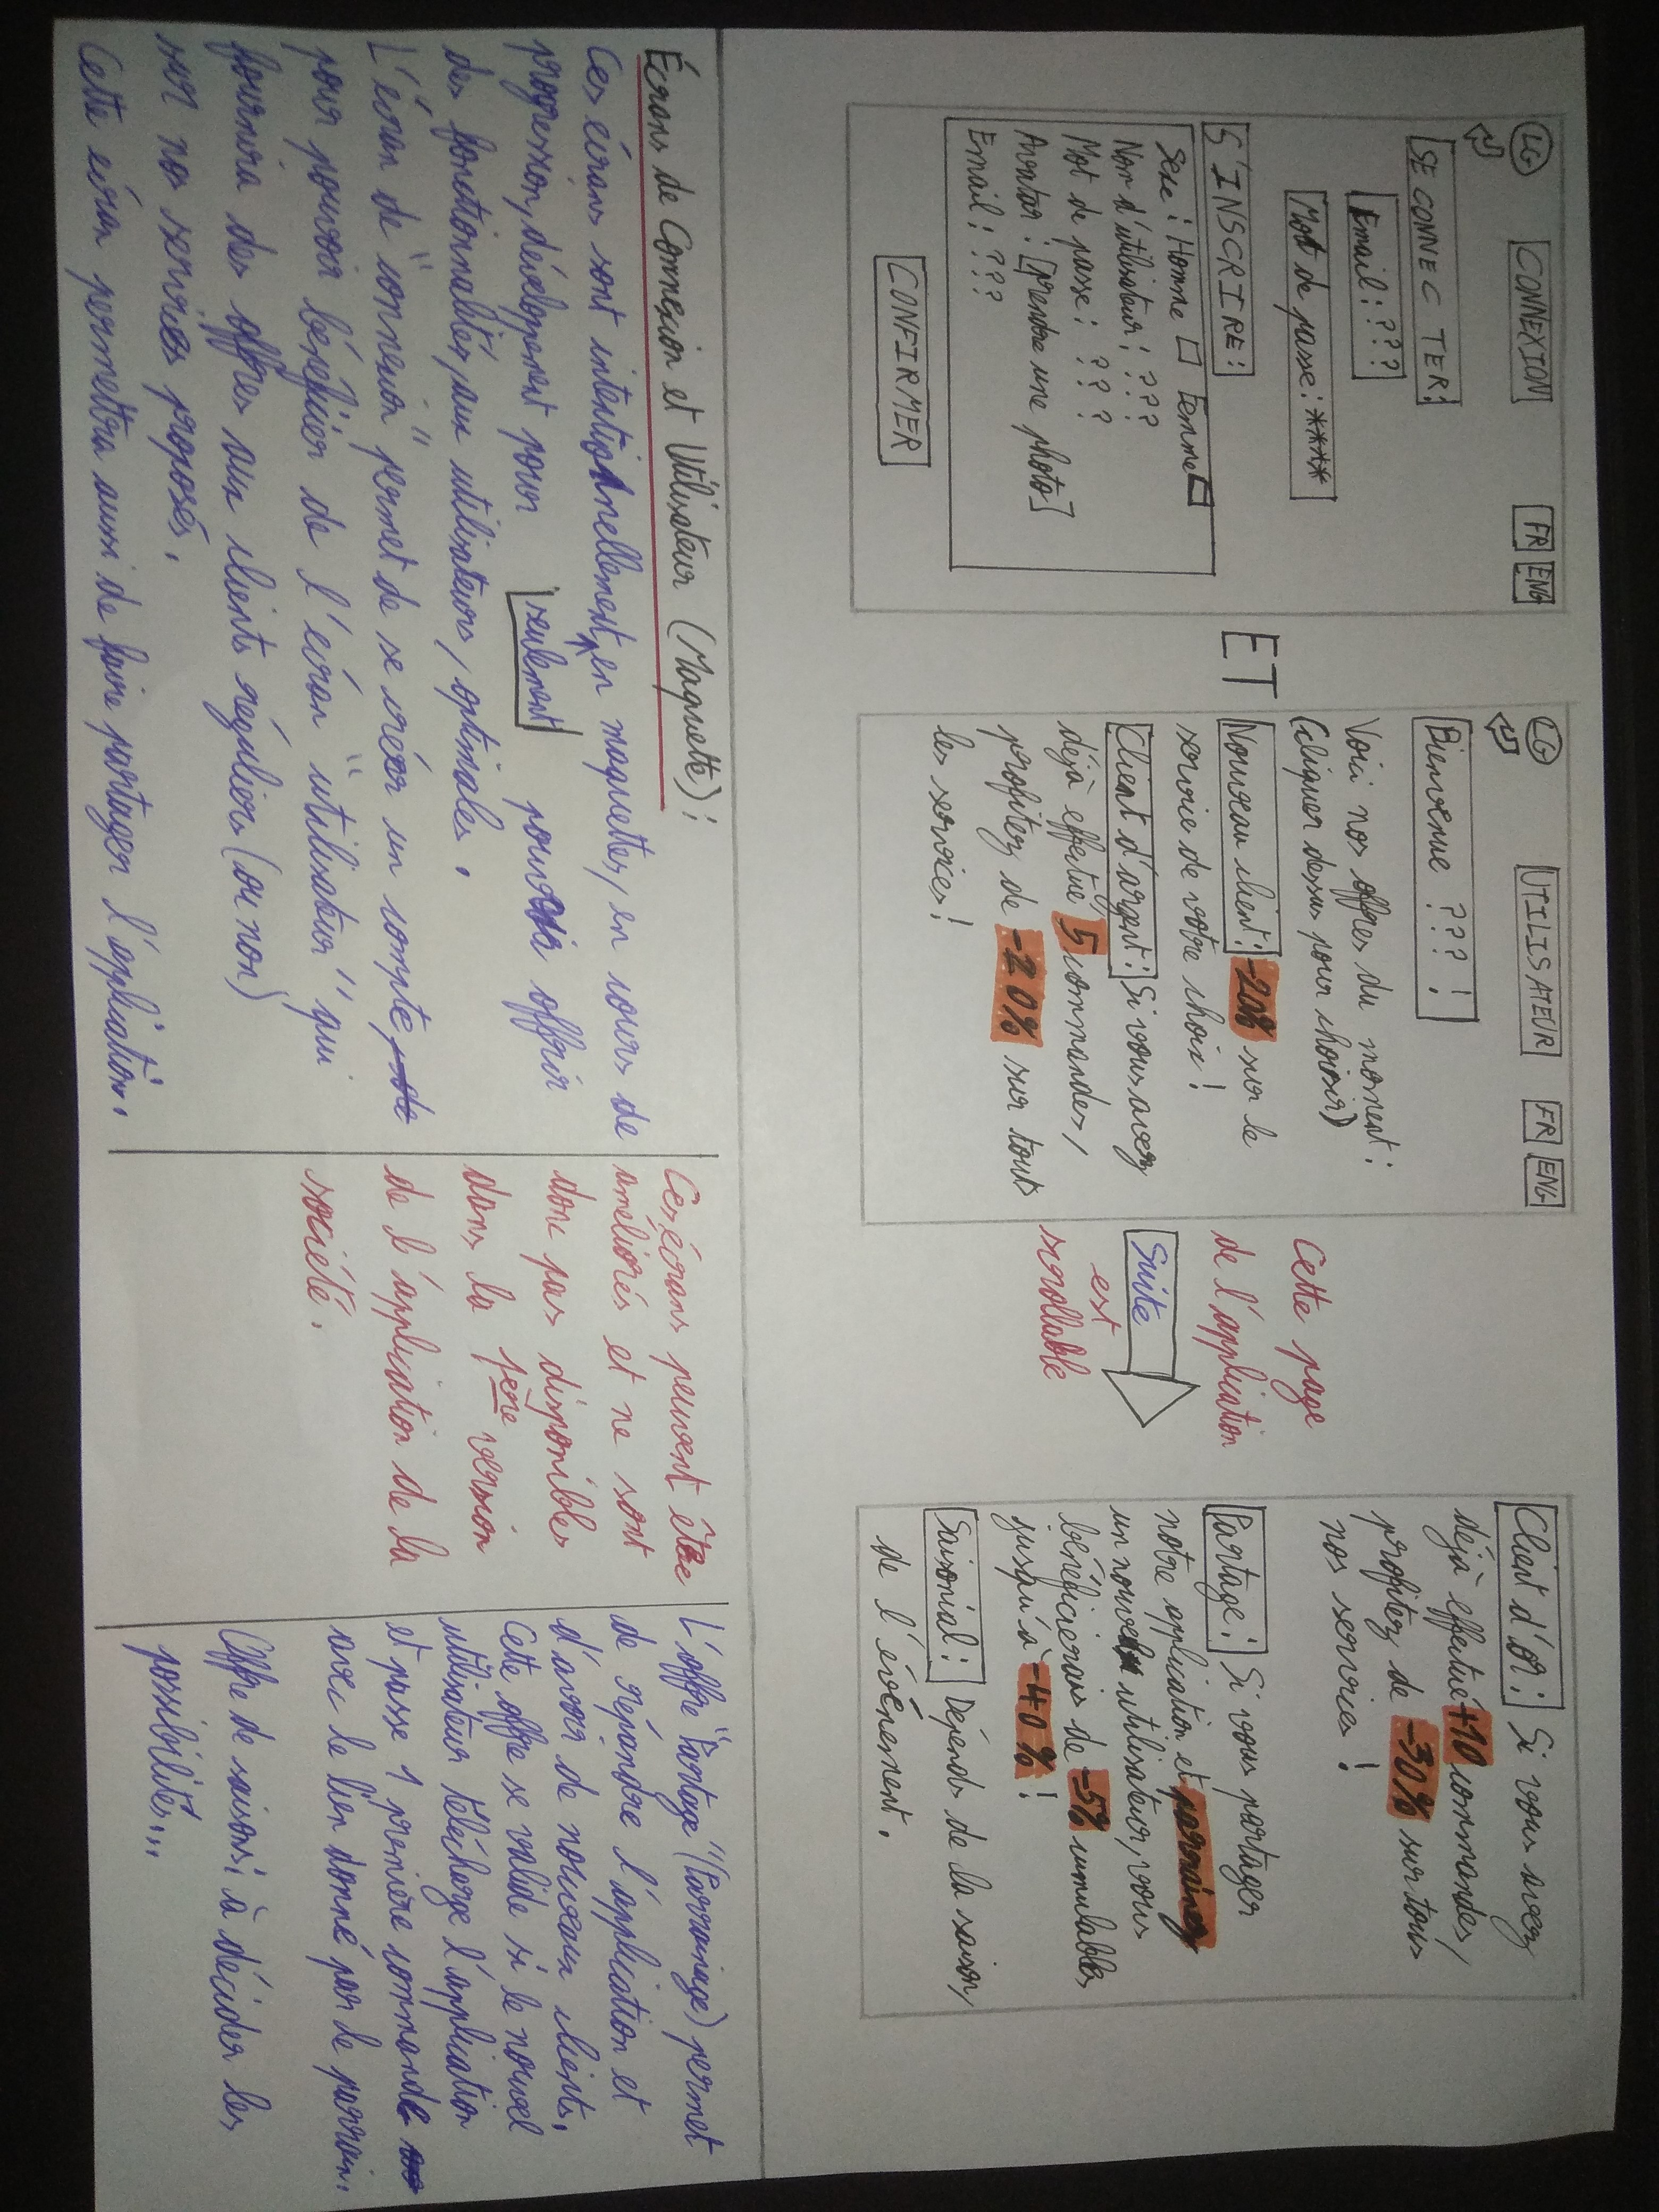 LG CONNEXION FR ENG
SE CONNECTER:
Email: ???
Mot de passe: ****
S'INSCRIRE:
Sexe : Homme Femme
Nom d'utilisateur: ???
Mot de passe: ???
Avatar : [prendre une photo]
Email: ???
CONFIRMER
ET
LG UTILISATEUR FR ENG
Bienvenue ??? !
Voici nos offres du moment :
(cliquer dessus pour choisir)
Nouveau client: -20% sur le
service de votre choix !
Client d'argent: Si vous avez
déjà effectué 5 commandes,
profitez de % sur touts
les services !
Cette page
de l'application
Suite
est
scrollable
Client d'or: Si vous avez
déjà effectué +10 commandes,
profitez de -30% sur tous
nos services !
Partage: Si vous partager
notre application et parrainez
un nouvel utilisateur, vous
bénéficierais de -5% cumulables
jusqu'à -40% !
Saisonial: Dépends de la saison,
de l'événement.
Écrans de Connexion et Utilisateur (Maquette):
Ces écrans sont intentionnellement en maquettes, en cours de
progression, développement pour seulement pouvoir offrir
des fonctionnalités, aux utilisateurs, optimales.
L'écran de "connexion" permet de se créer un compte, de
pour pouvoir bénéficier de l'écran "utilisateur" qui
fournira des offres aux clients réguliers (ou non)
sur nos services proposés.
Cette écran permettra aussi de faire partager l'application.
Ces écrans peuvent être
améliorés et ne sont
donc pas disponibles
dans la 1ère version
de l'application de la
société.
L'offre "Partage" (Parrainage) permet
de répandre l'application et
d'avoir de nouveaux clients.
Cette offre se valide si le nouvel
utilisateur télécharge l'application
et passe 1 première commande
avec le lien donné par le parrain.
Offre de saisons: à décider les
possibilités...